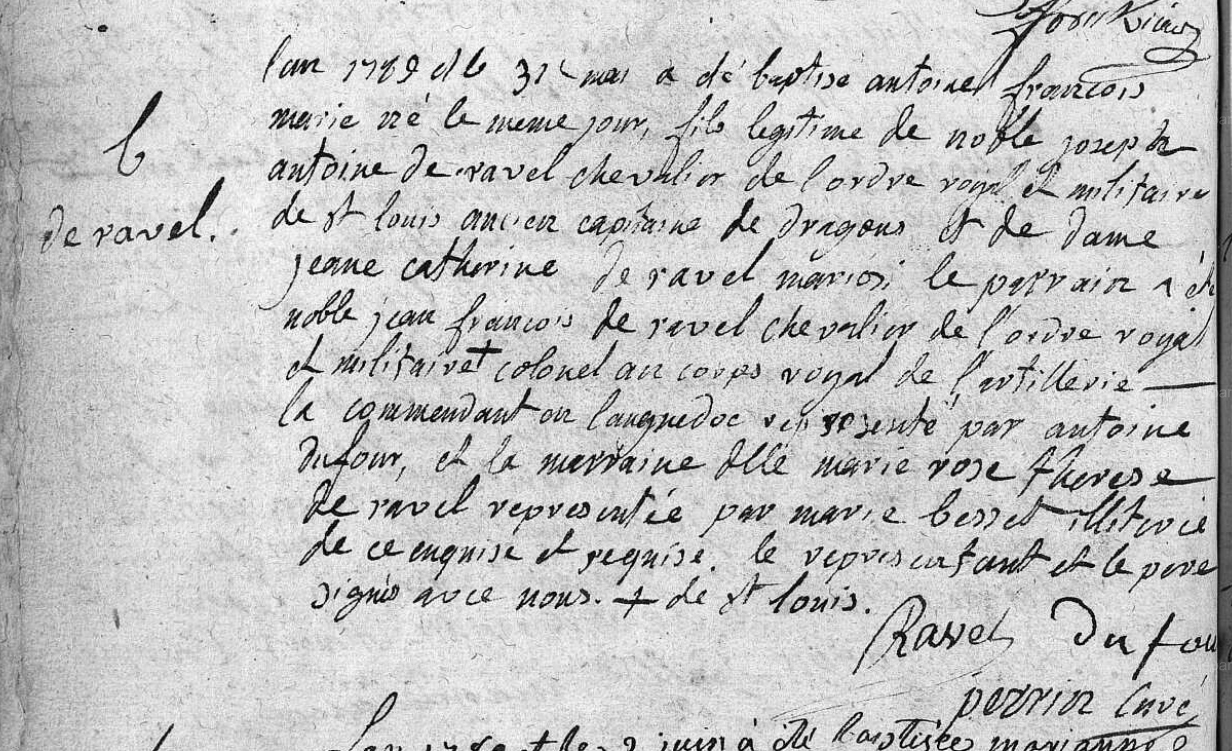 l'an 1789 et le 31 mai a été baptisé antoine françois
marie né le meme jour, fils legitime de noble joseph
B
antoine de ravel chevalier de l'ordre royal et militaire
de ravel.
de st louis ancien capitaine de dragons et de dame
jeane catherine de ravel mariés; le parrain a été
noble jean françois de ravel chevalier de l'ordre royal
et militaire + colonel au corps royal de l'artillerie
la commendant en languedoc representé par antoine
dufour, et la marraine dlle marie rose therese
de ravel representée par marie besset illiterée
de ce enquise et requise. le representant et le pere
signés avec nous. + de st louis.
Ravel Dufou
perrin curé
Lan 1789 et le 2 juin à été baptisée marianne